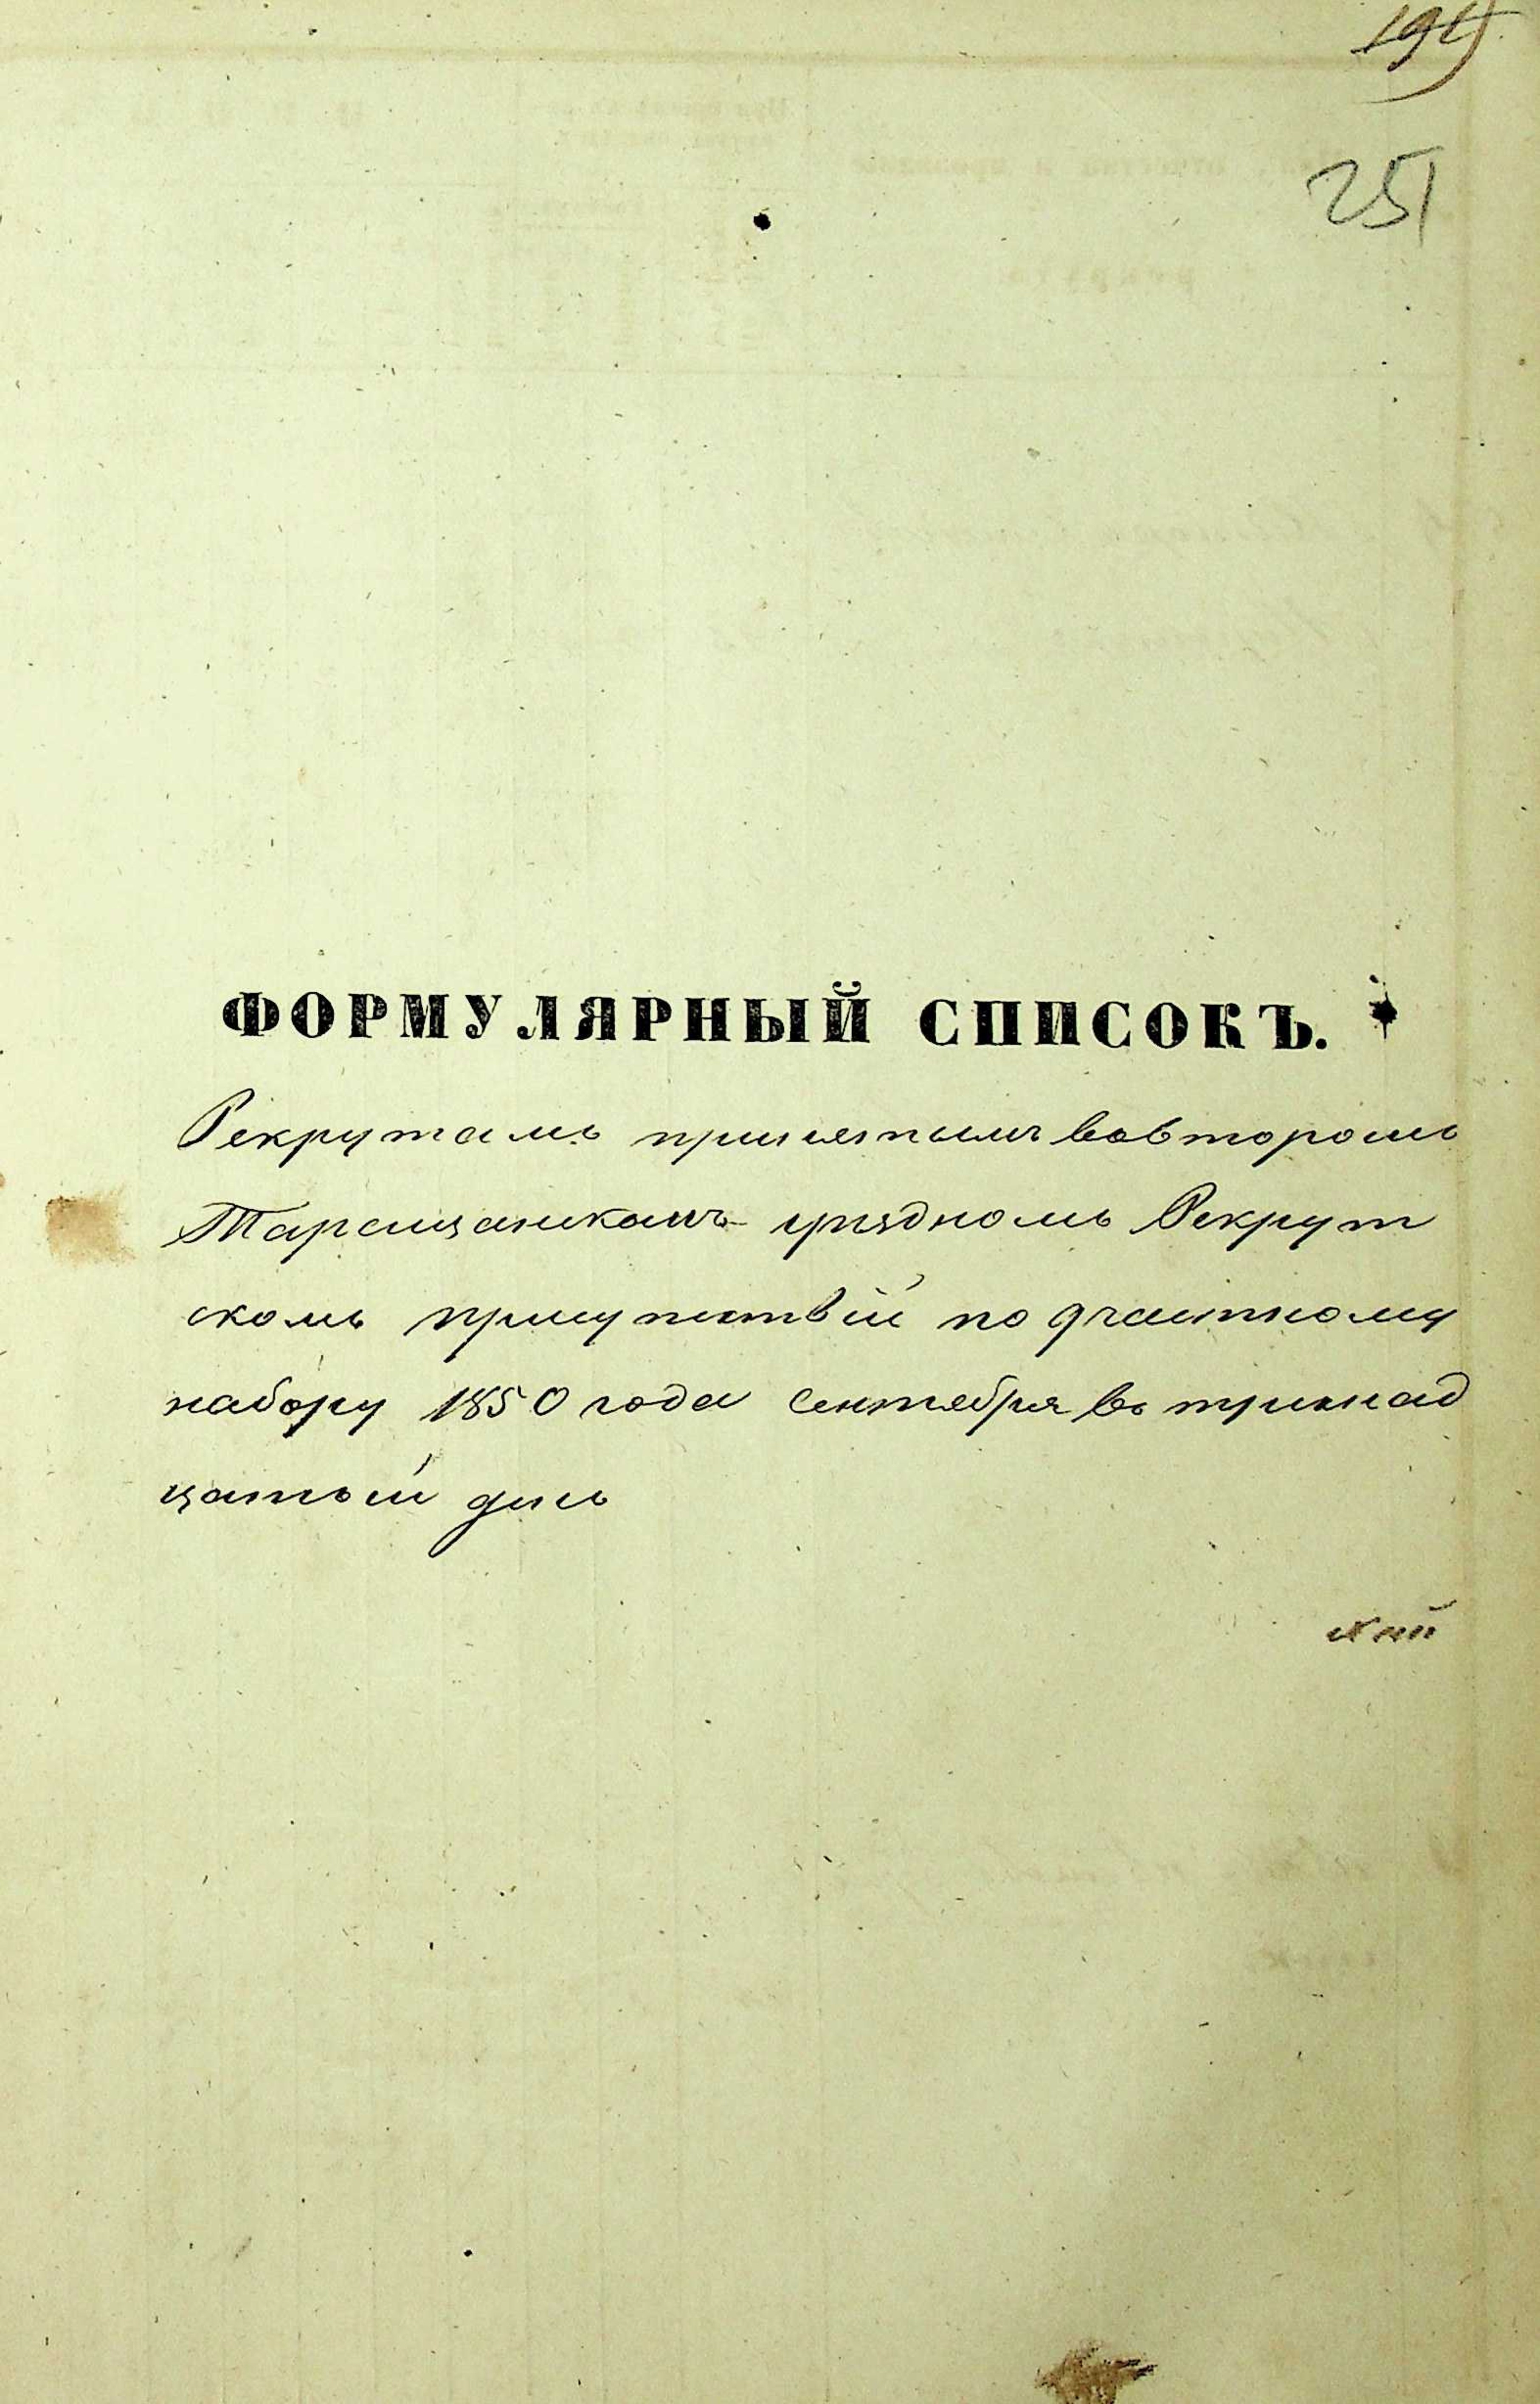 251
ФОРМУЛЯРНЫЙ СПИСОКЪ.
Рекрутамъ принятымъ вовторомъ
Таращанскомъ уѣздномъ Рекрут
скомъ присутствіи по участному
набору 1850 года Сентября въ тринад
цатый день